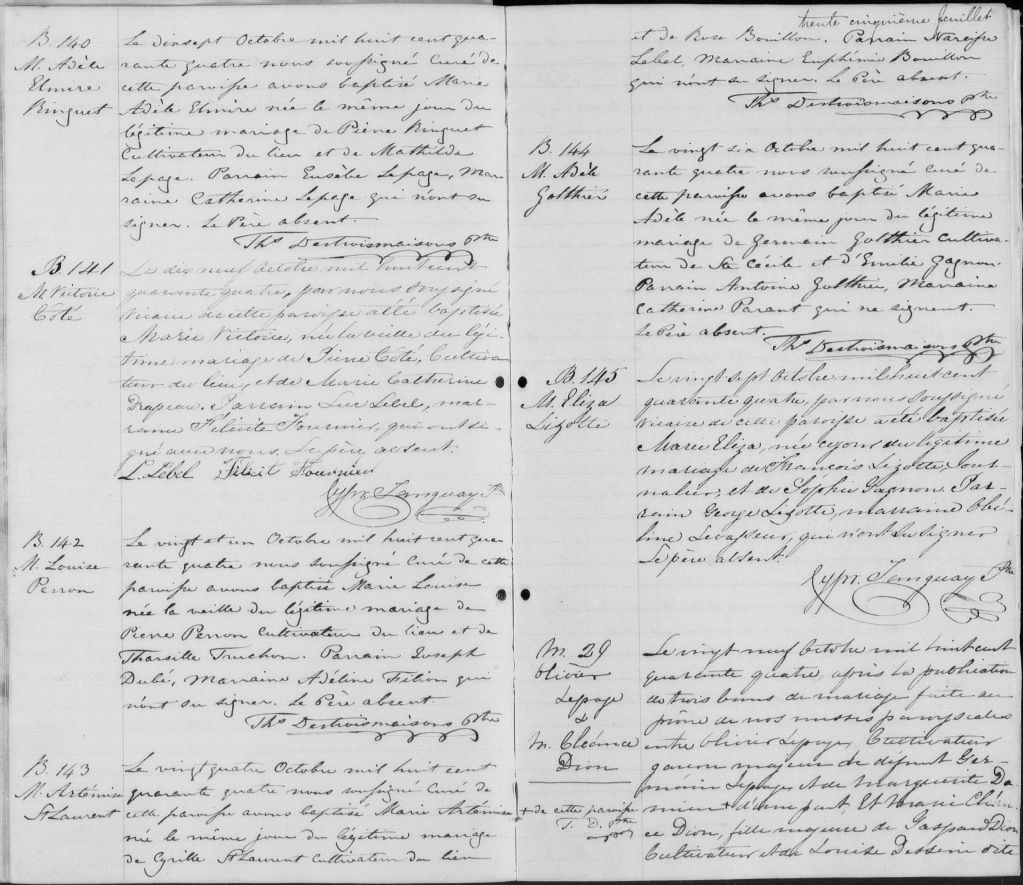 B. 140
M. Adèle
Elmire
Ringuet
Le dixsept Octobre mil huit cent qua-
rante quatre nous soussigné Curé de
cette paroisse avons baptisé Marie
Adèle Elmire née le même jour du
légitime mariage de Pierre Ringuet
Cultivateur du lieu et de Mathilde
Lepage. Parrain Eusèbe Lepage, Mar-
raine Catherine Lepage qui n'ont su
signer. Le Père absent.
Ths. Destroismaisons Ptre
B. 141
M. Victorie
Côté
Le dix neuf Octobre mil huit cent
quarante quatre, par nous soussigné
Vicaire de cette paroisse a été baptisée
Marie Victoire, née la veille du légi-
time mariage de Pierre Côté, Cultiva-
teur du lieu, et de Marie Catherine
Drapeau. Parrain Luc Lebel, mar-
raine Félicité Fournier, qui ont si-
gné avec nous. Le père absent.
L. Lebel Félicité Fournier
Cypn. Tanguay Ptre
B. 142
M. Louise
Perron
Le vingt et un Octobre mil huit cent qua-
rante quatre nous soussigné Curé de cette
paroisse avons baptisé Marie Louise
née la veille du légitime mariage de
Pierre Perron Cultivateur du lieu et de
Tharsille Truchon. Parrain Joseph
Dubé, Marraine Adéline Filion qui
n'ont su signer. Le Père absent.
Ths. Destroismaisons Ptre
B. 143
M. Artémise
St Laurent
Le vingt quatre Octobre mil huit cent
quarante quatre nous soussigné Curé de
cette paroisse avons baptisé Marie Artémise
née le même jour du légitime mariage
de Cyrille St Laurent Cultivateur du lieu
trente cinquième feuillet
et de Rose Bouillon. Parrain Narcisse
Lebel, Marraine Euphémie Bouillon
qui n'ont su signer. Le Père absent.
Ths. Destroismaisons Ptre
B. 144
M. Adèle
Golthier
Le vingt six Octobre mil huit cent qua-
rante quatre nous soussigné curé de
cette paroisse avons baptisé Marie
Adèle née le même jour du légitime
mariage de Germain Golthier Cultiva-
teur de Ste Cécile et d'Emilie Gagnon.
Parrain Antoine Golthier, Marraine
Catherine Parant qui ne signent.
Le Père absent.
Ths. Destroismaisons Ptre
B. 145
M. Eliza
Lizotte
Le vingt sept Octobre mil huit cent
quarante quatre, par nous soussigné
Vicaire de cette paroisse a été baptisée
Marie Eliza, née ce jour du légitime
mariage de François Lizotte, Jour-
nalier, et de Sophie Gagnon. Par-
rain George Lizotte, marraine Thé-
line Levasseur, qui n'ont su signer
Le père absent.
Cypn. Tanguay Ptre
M. 29
Olivier
Lepage
&
M. Cléonce
Dion
Le vingt neuf Octobre mil huit cent
quarante quatre, après la publication
de trois bans de mariage faite au
prône de nos messes paroissiales
entre Olivier Lepage, Cultivateur
garçon majeur de défunt Ger-
main Lepage et de Marguerite Da-
mien + d'une part, Et Marie Cléon-
ce Dion, fille majeure de Gaspard Dion
Cultivateur et de Louise Dessein dite
+ de cette paroisse
T. D. Ptre